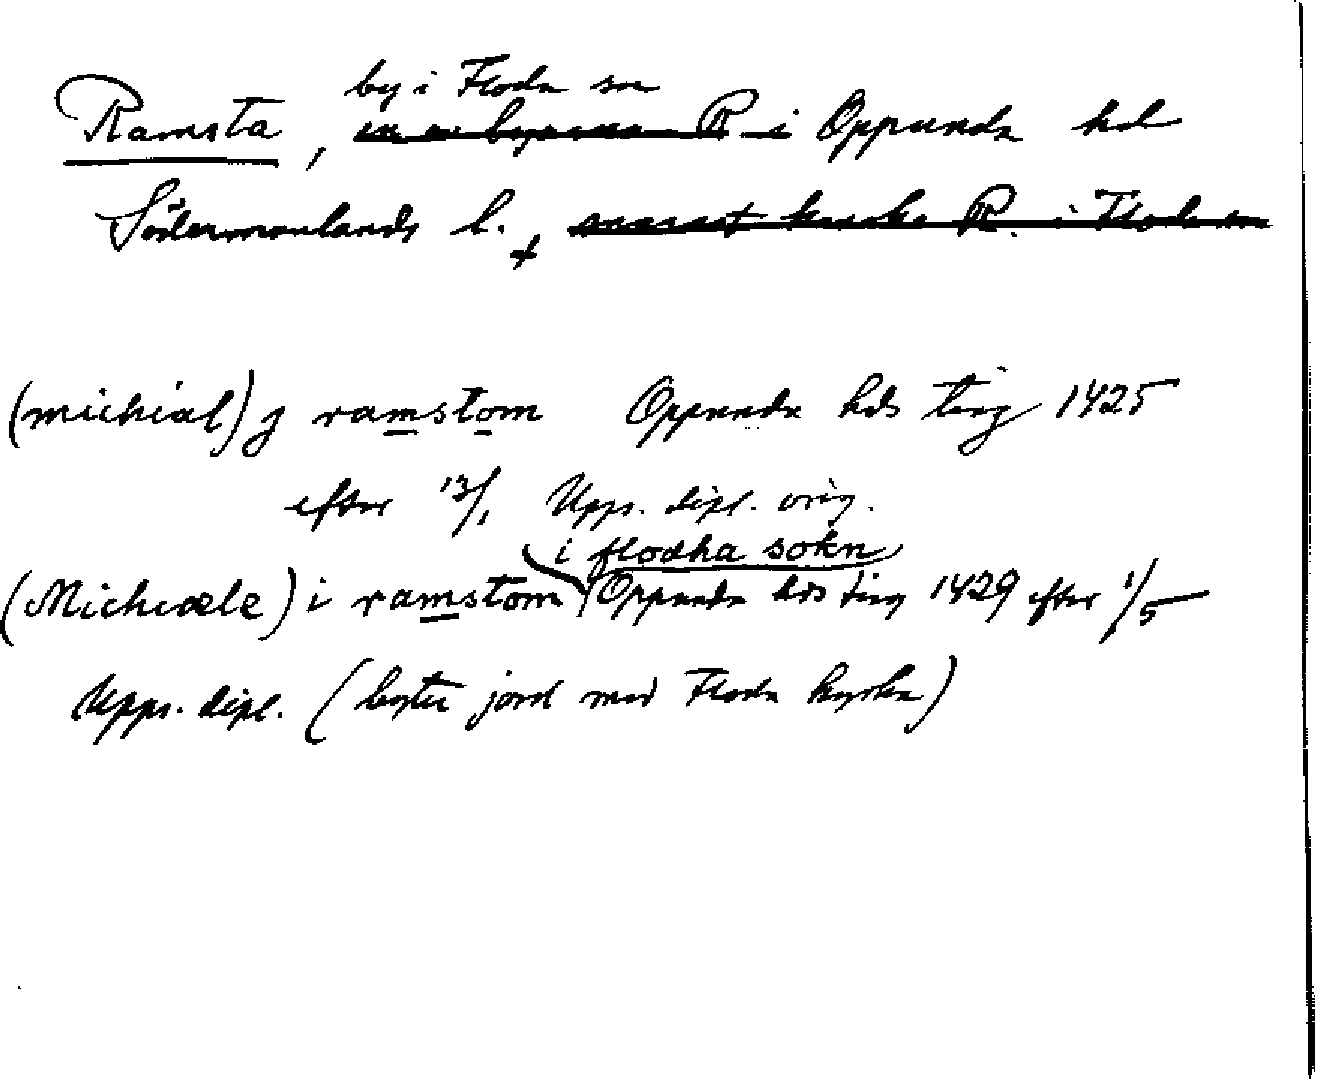 by i Floda sn
Ramsta, en av byarna R i Oppunda hd
Södermanlands l. + snarast kanske R. i Floda sn
(michial) j ramstom Oppunda hds ting 1425
efter 13/1 Upps. dipl. orig.
i flodha sokn
(Michiæle) i ramstom Oppunda hds ting 1429 efter 1/5
Upps. dipl. (byter jord med Floda kyrka)